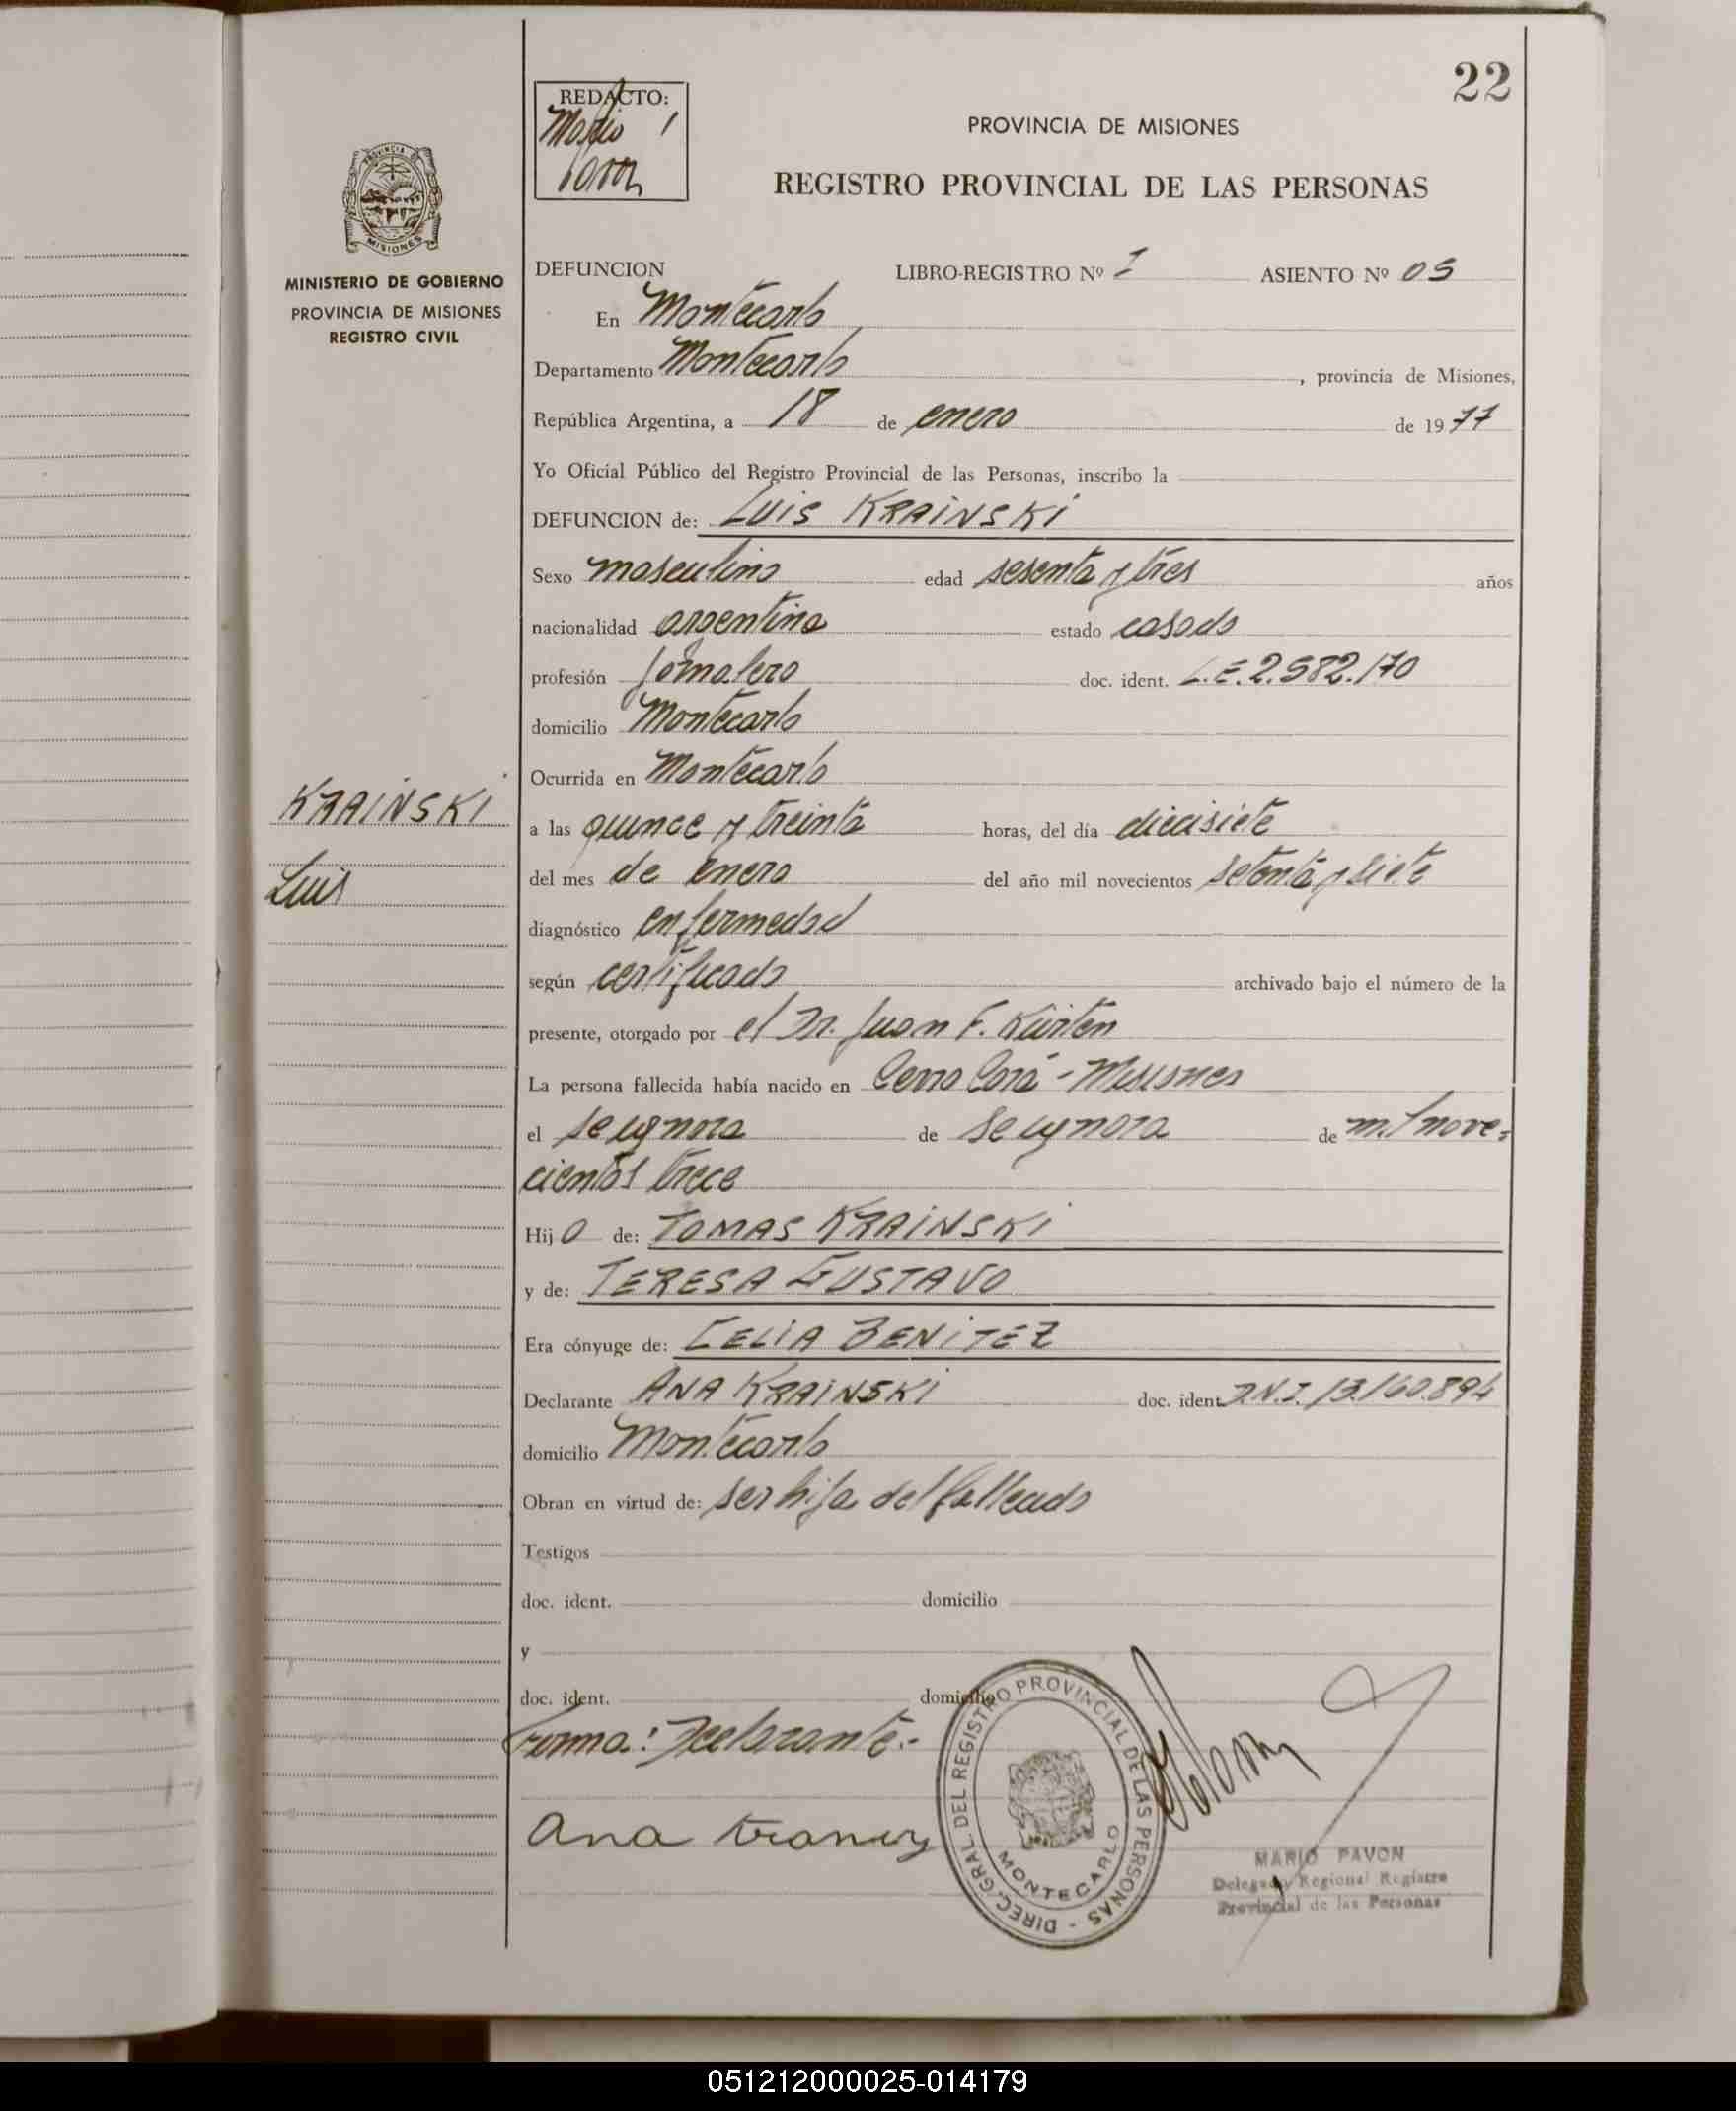 22
REDACTO:
Mario
Pavon
PROVINCIA DE MISIONES
REGISTRO PROVINCIAL DE LAS PERSONAS
PROVINCIA DE
MISIONES
MINISTERIO DE GOBIERNO
PROVINCIA DE MISIONES
REGISTRO CIVIL
DEFUNCION LIBRO-REGISTRO Nº I ASIENTO Nº 05
En Montecarlo,
Departamento Montecarlo, provincia de Misiones,
República Argentina, a 18 de enero de 1977
Yo Oficial Público del Registro Provincial de las Personas, inscribo la
DEFUNCION de: LUIS KRAINSKI
Sexo masculino edad sesenta y tres años
nacionalidad argentina estado casado
profesión Jornalero doc. ident. L.E. 2.582.170
domicilio Montecarlo
Ocurrida en Montecarlo
KRAINSKI
Luis
a las quince y treinta horas, del día diecisiete
del mes de enero del año mil novecientos setenta y siete
diagnóstico enfermedad
según certificado archivado bajo el número de la
presente, otorgado por el Dr. Juan F. Kürten
La persona fallecida había nacido en Cerro Corá - Misiones
el se ignora de se ignora de mil nove=
cientos trece
Hijo de: TOMAS KRAINSKI
y de: TERESA GUSTAVO
Era cónyuge de: CELIA BENITEZ
Declarante ANA KRAINSKI doc. ident. D.N.I. 13.160.894
domicilio Montecarlo
Obran en virtud de: ser hija del fallecido
Testigos
doc. ident. domicilio
y
doc. ident. domicilio
Firma: Declarante.-
Ana
DIREC. GRAL. DEL REGISTRO PROVINCIAL DE LAS PERSONAS -
MONTECARLO
MARIO PAVON
Delegado Regional Registro
Provincial de las Personas
051212000025-014179